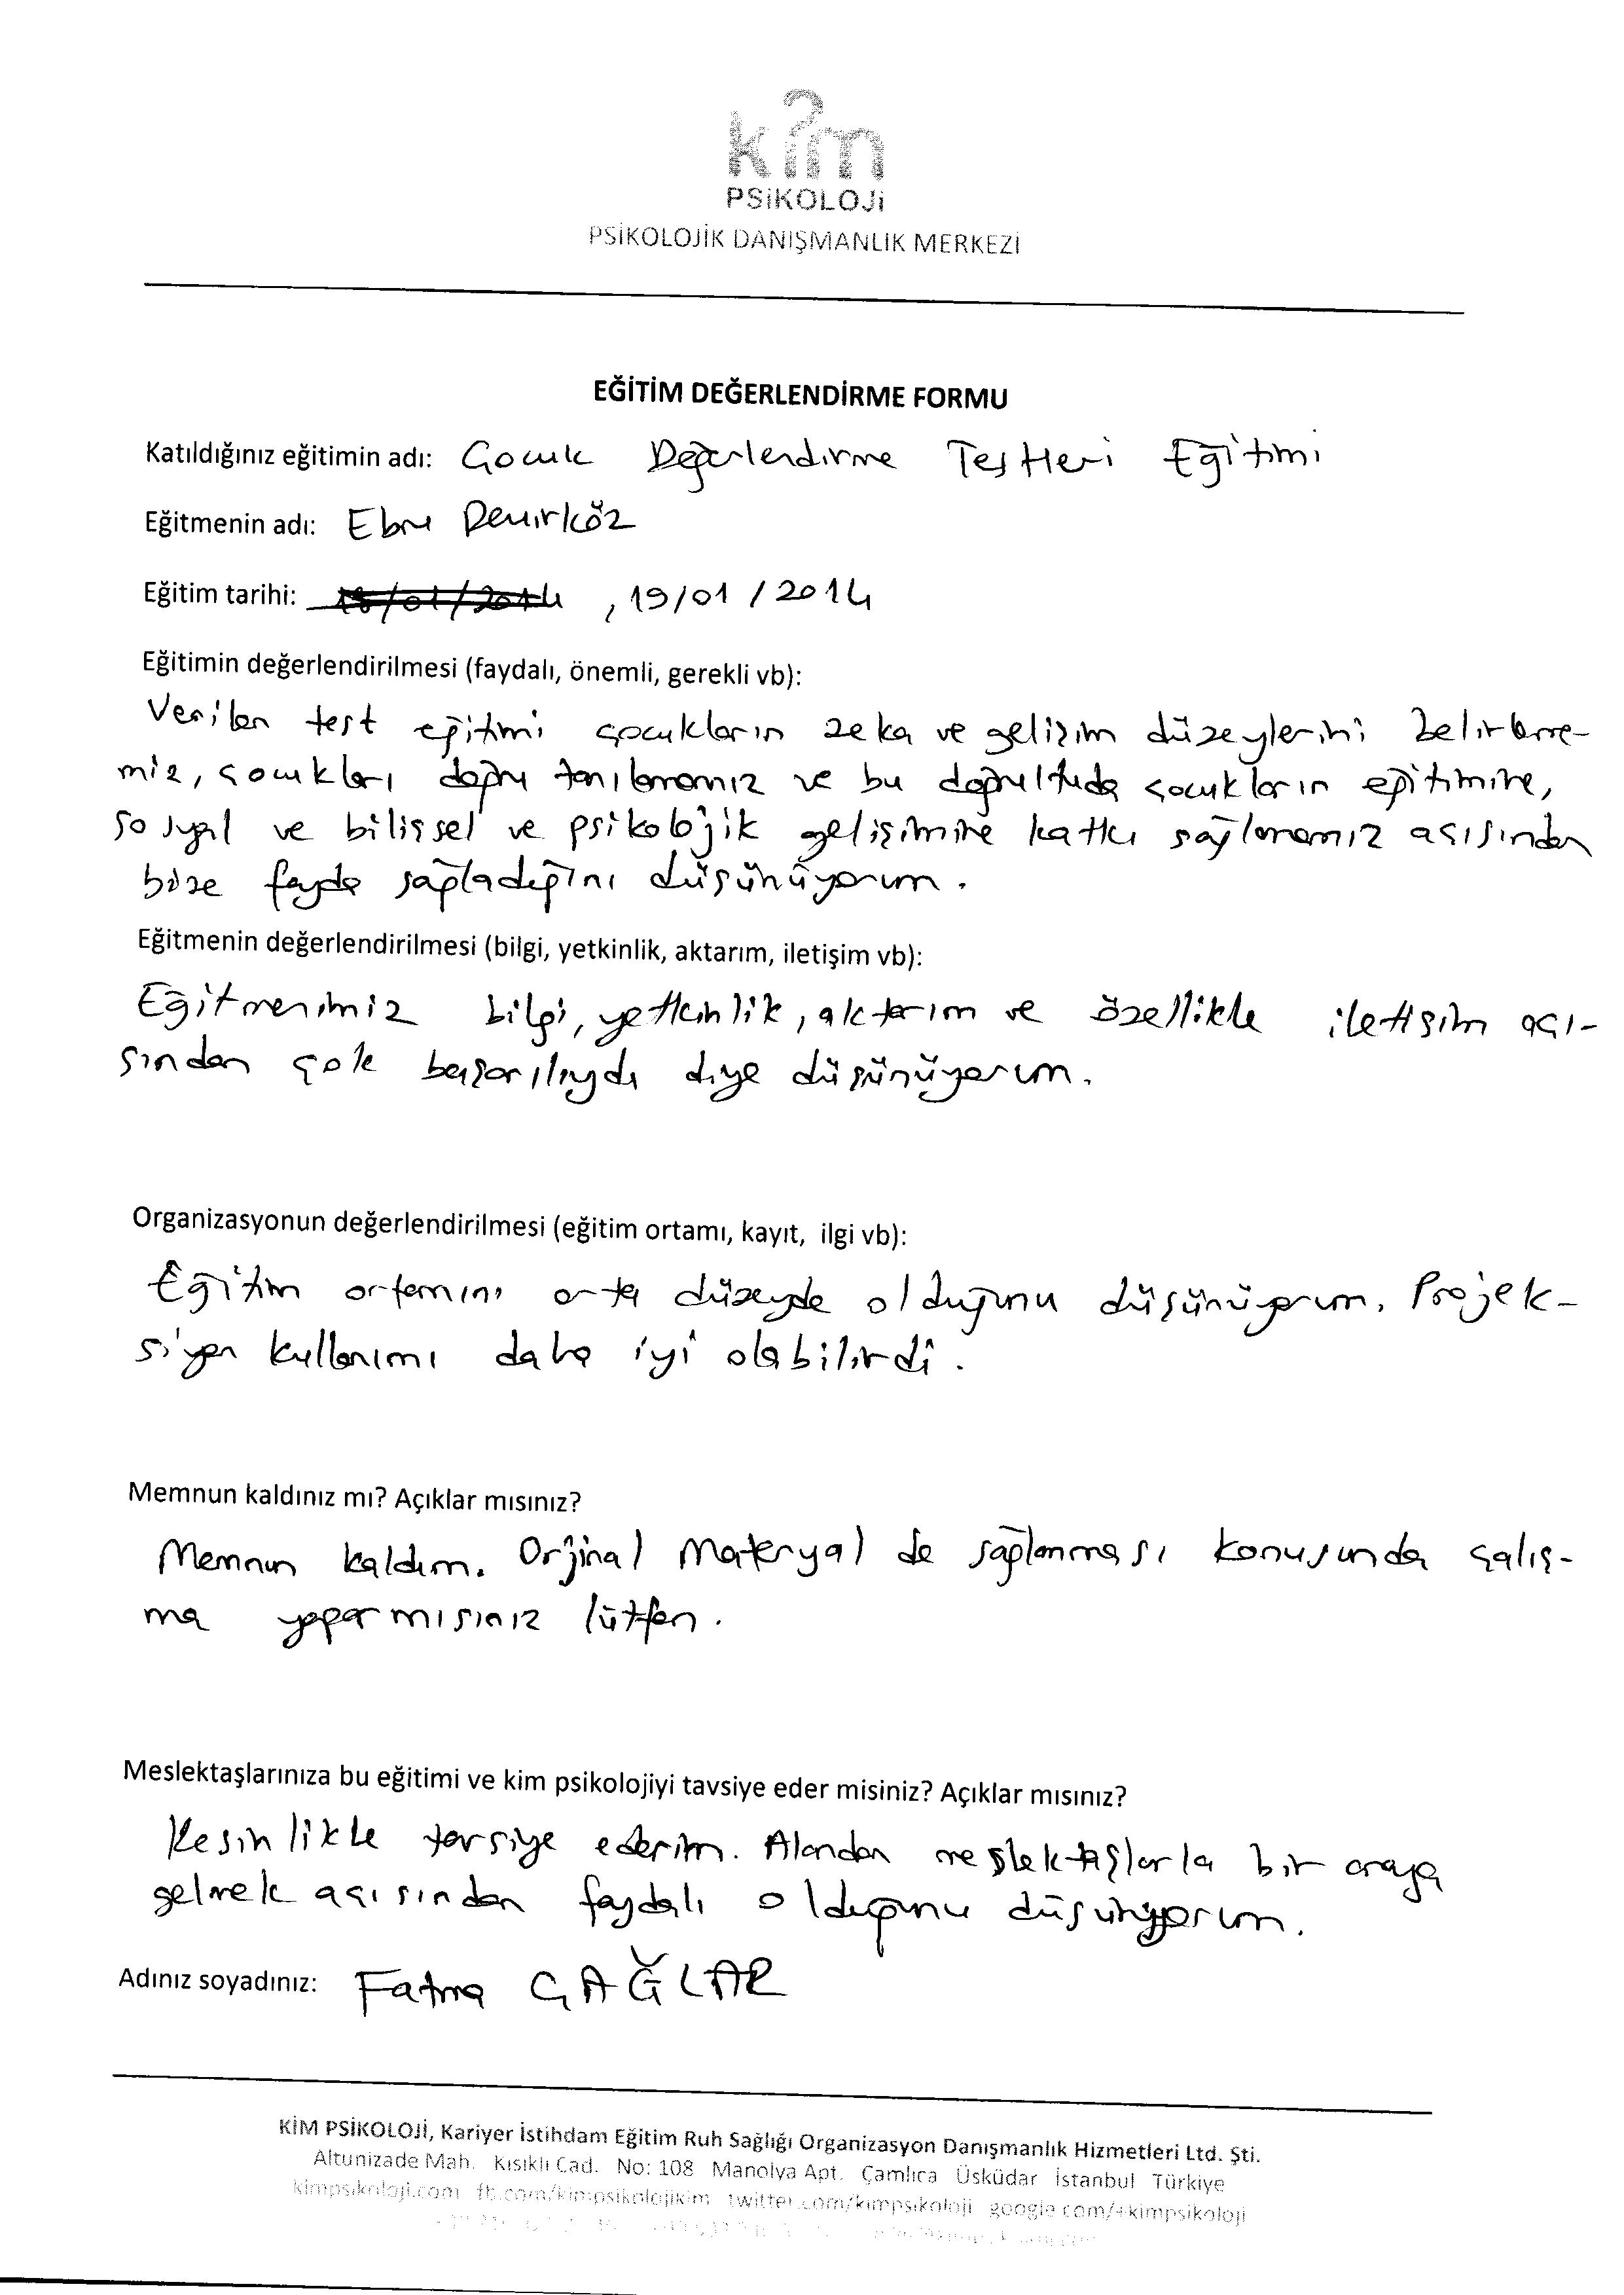 k?m
PSİKOLOJİ
PSİKOLOJİK DANIŞMANLIK MERKEZİ
EĞİTİM DEĞERLENDİRME FORMU
Katıldığınız eğitimin adı: Çocuk Değerlendirme Testleri Eğitimi
Eğitmenin adı: Ebru Demirköz
Eğitim tarihi: 18/01/2014 , 19/01/2014
Eğitimin değerlendirilmesi (faydalı, önemli, gerekli vb):
Verilen test eğitimi çocukların zeka ve gelişim düzeylerini belirleme-
miz, çocukları doğru tanılamamız ve bu doğrultuda çocukların eğitimine,
sosyal ve bilişsel ve psikolojik gelişimine katkı sağlamamız açısından
bize fayda sağladığını düşünüyorum.
Eğitmenin değerlendirilmesi (bilgi, yetkinlik, aktarım, iletişim vb):
Eğitmenimiz bilgi, yetkinlik, aktarım ve özellikle iletişim açı-
sından çok başarılıydı diye düşünüyorum.
Organizasyonun değerlendirilmesi (eğitim ortamı, kayıt, ilgi vb):
Eğitim ortamını orta düzeyde olduğunu düşünüyorum. Projek-
siyon kullanımı daha iyi olabilirdi.
Memnun kaldınız mı? Açıklar mısınız?
Memnun kaldım. Orjinal Materyal de sağlanması konusunda çalış-
ma yapar mısınız lütfen.
Meslektaşlarınıza bu eğitimi ve kim psikolojiyi tavsiye eder misiniz? Açıklar mısınız?
Kesinlikle tavsiye ederim. Alandan meslektaşlarla bir araya
gelmek açısından faydalı olduğunu düşünüyorum.
Adınız soyadınız: Fatma ÇAĞLAR
KİM PSİKOLOJİ, Kariyer İstihdam Eğitim Ruh Sağlığı Organizasyon Danışmanlık Hizmetleri Ltd. Şti.
Altunizade Mah. Kısıklı Cad. No: 108 Manolya Apt. Çamlıca Üsküdar İstanbul Türkiye
kimpsikoloji.com fb.com/kimpsikolojikim twitter.com/kimpsikoloji google.com/+kimpsikoloji